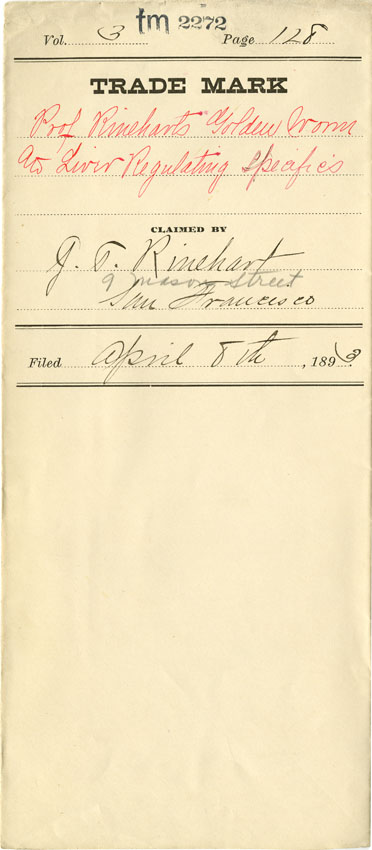 tm 2272
Vol. 3 Page 128
TRADE MARK
Prof Rinehart's Golden Worm
and Liver Regulating Specifics
CLAIMED BY
J. T. Rinehart
9 Mason Street
San Francisco
Filed April 8th, 1893.